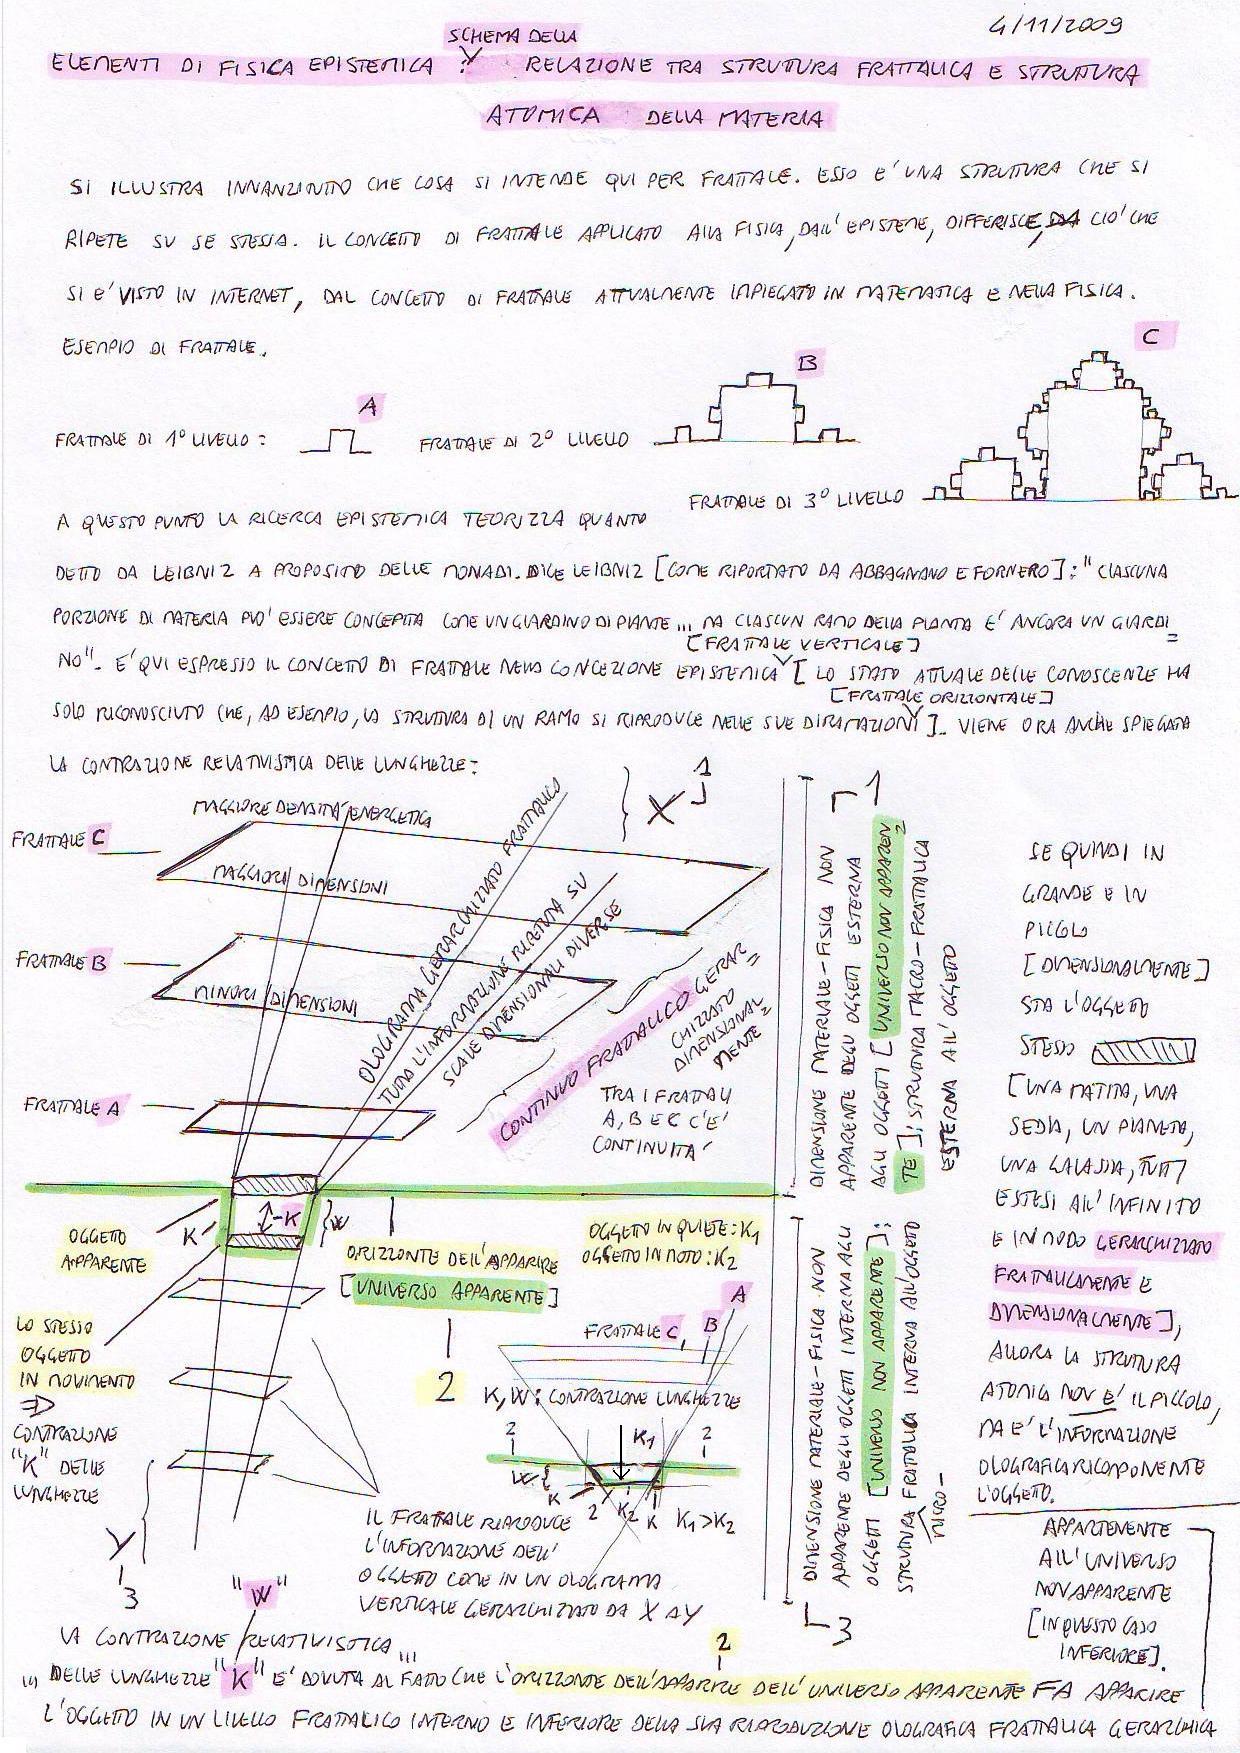 4/11/2009
SCHEMA DELLA
ELEMENTI DI FISICA EPISTEMICA : RELAZIONE TRA STRUTTURA FRATTALICA E STRUTTURA
ATOMICA DELLA MATERIA
SI ILLUSTRA INNANZITUTTO CHE COSA SI INTENDE QUI PER FRATTALE. ESSO E' UNA STRUTTURA CHE SI
RIPETE SU SE STESSA. IL CONCETTO DI FRATTALE APPLICATO ALLA FISICA, DALL'EPISTEME, DIFFERISCE, CIO' CHE
SI E' VISTO IN INTERNET, DAL CONCETTO DI FRATTALE ATTUALMENTE IMPIEGATO IN MATEMATICA E NELLA FISICA.
ESEMPIO DI FRATTALE.
A
B
C
FRATTALE DI 1° LIVELLO :
FRATTALE DI 2° LIVELLO
FRATTALE DI 3° LIVELLO
A QUESTO PUNTO LA RICERCA EPISTEMICA TEORIZZA QUANTO
DETTO DA LEIBNIZ A PROPOSITO DELLE MONADI. DICE LEIBNIZ [COME RIPORTATO DA ABBAGNANO E FORNERO] : "CIASCUNA
PORZIONE DI MATERIA PUO' ESSERE CONCEPITA COME UN GIARDINO DI PIANTE... MA CIASCUN RAMO DELLA PIANTA E' ANCORA UN GIARDI=
[FRATTALE VERTICALE]
NO". E' QUI ESPRESSO IL CONCETTO DI FRATTALE NELLA CONCEZIONE EPISTEMICA [LO STATO ATTUALE DELLE CONOSCENZE HA
[FRATTALE ORIZZONTALE]
SOLO RICONOSCIUTO CHE, AD ESEMPIO, LA STRUTTURA DI UN RAMO SI RIPRODUCE NELLE SUE DIRAMAZIONI]. VIENE ORA ANCHE SPIEGATA
LA CONTRAZIONE RELATIVISTICA DELLE LUNGHEZZE :
MAGGIORE DENSITA' ENERGETICA
FRATTALE C
MAGGIORI DIMENSIONI
FRATTALE B
MINORI DIMENSIONI
FRATTALE A
OLOGRAMMA GERARCHIZZATO FRATTALICO
TUTTA L'INFORMAZIONE RIPETUTA SU
SCALE DIMENSIONALI DIVERSE
X
1
CONTINUO FRATTALICO GERAR=
CHIZZATO
DIMENSIONAL=
MENTE
TRA I FRATTALI
A, B E C C'E'
CONTINUITA'
1
DIMENSIONE MATERIALE-FISICA NON
APPARENTE DEGLI OGGETTI ESTERNA
AGLI OGGETTI [UNIVERSO NON APPAREN=
TE] ; STRUTTURA MACRO-FRATTALICA
ESTERNA ALL'OGGETTO
SE QUINDI IN
GRANDE E IN
PICCOLO
[DIMENSIONALMENTE]
STA L'OGGETTO
STESSO
[UNA MATITA, UNA
SEDIA, UN PIANETA,
UNA GALASSIA, TUTTI
ESTESI ALL'INFINITO
E IN MODO GERARCHIZZATO
FRATTALICAMENTE E
DIMENSIONALMENTE],
ALLORA LA STRUTTURA
ATOMICA NON E' IL PICCOLO,
MA E' L'INFORMAZIONE
OLOGRAFICA RICOMPONENTE
L'OGGETTO.
APPARTENENTE
ALL'UNIVERSO
NON APPARENTE
[IN QUESTO CASO
INFERIORE].
OGGETTO
APPARENTE
K
K
W
ORIZZONTE DELL'APPARIRE
[UNIVERSO APPARENTE]
2
OGGETTO IN QUIETE : K1
OGGETTO IN MOTO : K2
LO STESSO
OGGETTO
IN MOVIMENTO
⇒
CONTRAZIONE
"K" DELLE
LUNGHEZZE
Y
3
A
FRATTALE C, B
K, W : CONTRAZIONE LUNGHEZZE
2
K1
2
W
K
2
K2
K
K1 > K2
IL FRATTALE RIPRODUCE
L'INFORMAZIONE DELL'
OGGETTO COME IN UN OLOGRAMMA
VERTICALE GERARCHIZZATO DA X A Y
DIMENSIONE MATERIALE-FISICA NON
APPARENTE DEGLI OGGETTI INTERNA AGLI
OGGETTI [UNIVERSO NON APPARENTE] ;
STRUTTURA FRATTALICA INTERNA ALL'OGGETTO
MICRO-
3
"W"
LA CONTRAZIONE RELATIVISTICA...
2
... DELLE LUNGHEZZE "K" E' DOVUTA AL FATTO CHE L'ORIZZONTE DELL'APPARIRE DELL'UNIVERSO APPARENTE FA APPARIRE
L'OGGETTO IN UN LIVELLO FRATTALICO INTERNO E INFERIORE DELLA SUA RIPRODUZIONE OLOGRAFICA FRATTALICA GERARCHICA